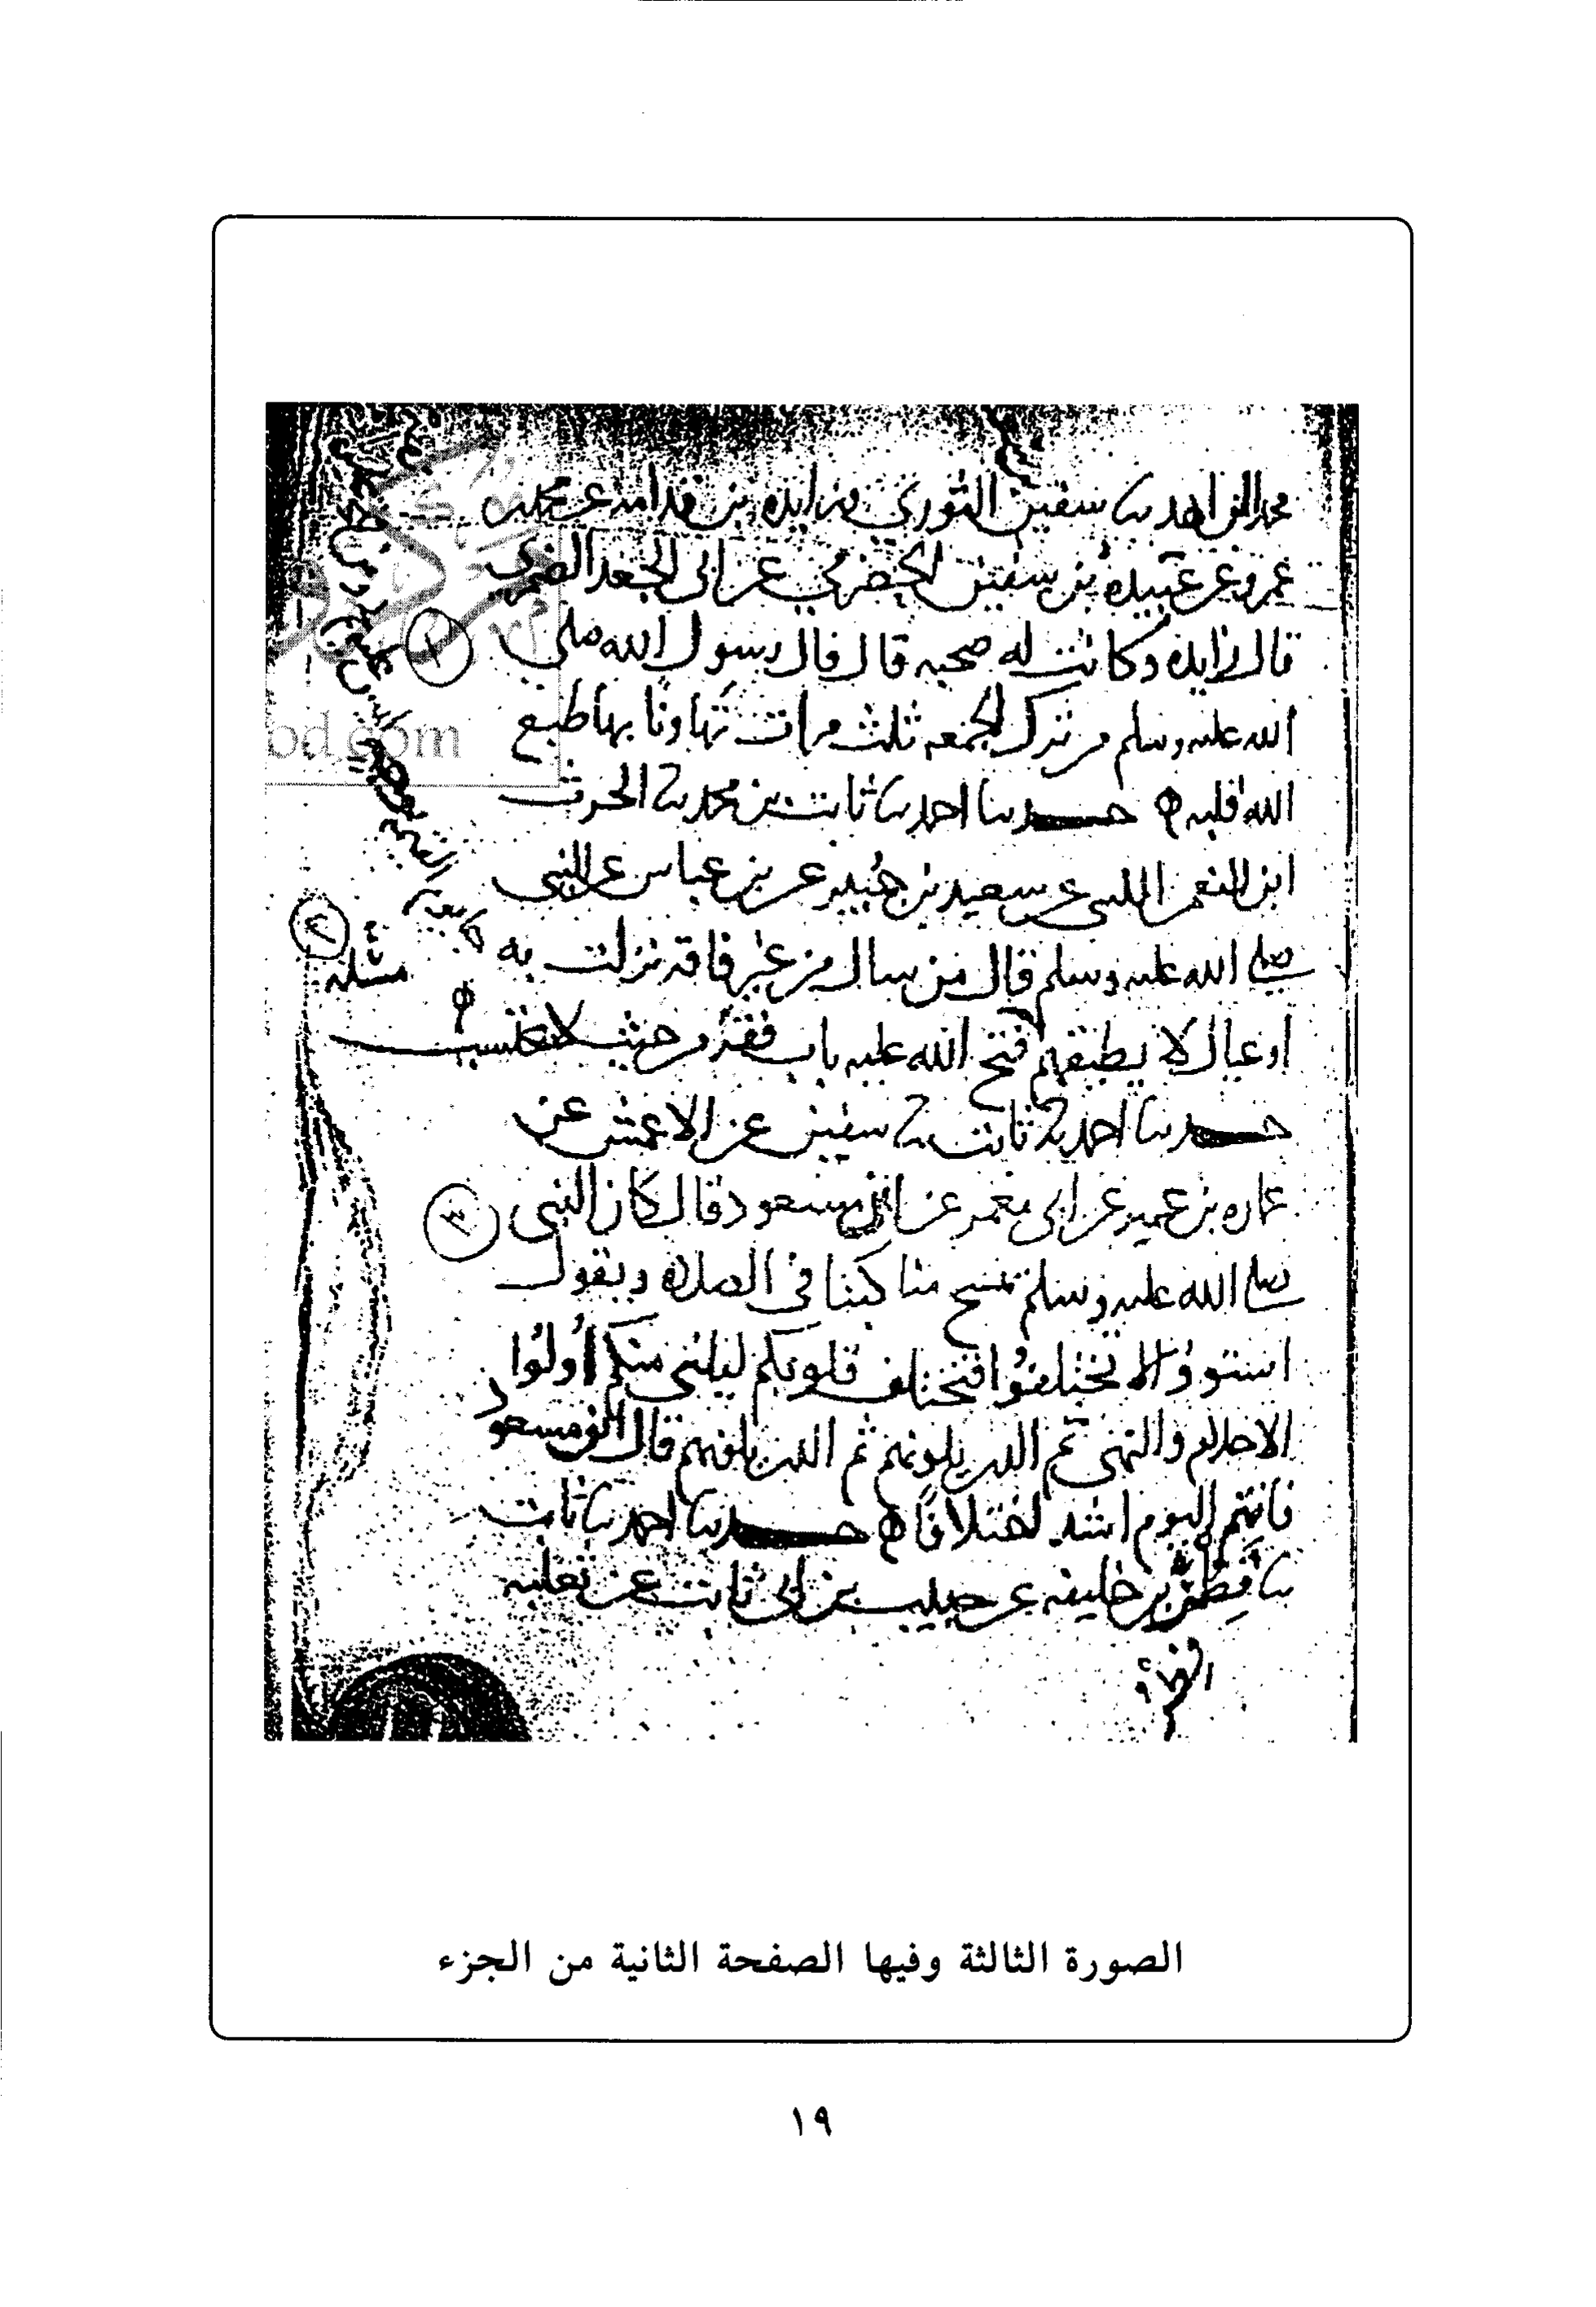 سفين الثوري وزايده بن قدامه عن محمد بن
عمرو عن عبيده بن سفين الحضرمي عن ابي الجعد الضمري
قال زايده وكانت له صحبه قال قال رسول الله صلى
الله عليه وسلم من ترك الجمعه ثلث مرات تهاونا بها طبع
الله قلبه حدثنا احمد ثنا ثابت بن محمد ثنا الحرث
ابن النعمن الليثي عن سعيد بن جبير عن بن عباس عن النبي
صلى الله عليه وسلم قال من سال من غير فاقه نزلت به
او عيال لا يطيقهم فتح الله عليه باب فقر من حيث لا يحتسب
حدثنا احمد ثنا ثابت ثنا سفين عن الاعمش عن
عماره بن عمير عن ابي معمر عن مسعود قال كان النبي
صلى الله عليه وسلم يمسح مناكبنا في الصلاة ويقول
استووا ولا تختلفوا فتختلف قلوبكم ليليني منكم اولوا
الاحلام والنهى ثم الذين يلونهم ثم الذين يلونهم قال ابو مسعود
فانتم اليوم اشد اختلافا حدثنا احمد ثنا ثابت
ثنا فطر بن خليفه عن حبيب بن ابي ثابت عن ثعلبه
١
٢
مسئله
٣
bd.com
الصورة الثالثة وفيها الصفحة الثانية من الجزء
١٩